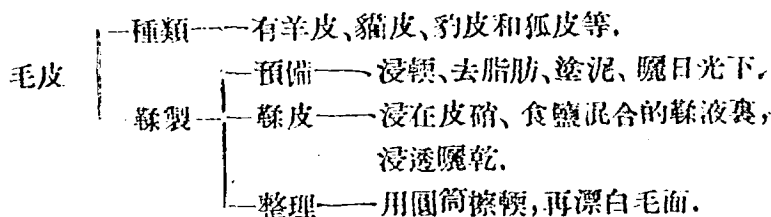 種類——有羊皮、貓皮、豹皮和狐皮等.
毛皮
預備——浸輭、去脂肪、塗泥、曬日光下.
鞣製
鞣皮——浸在皮硝、食鹽混合的鞣液裏,
浸透曬乾.
整理——用圓筒擦輭,再漂白毛面.